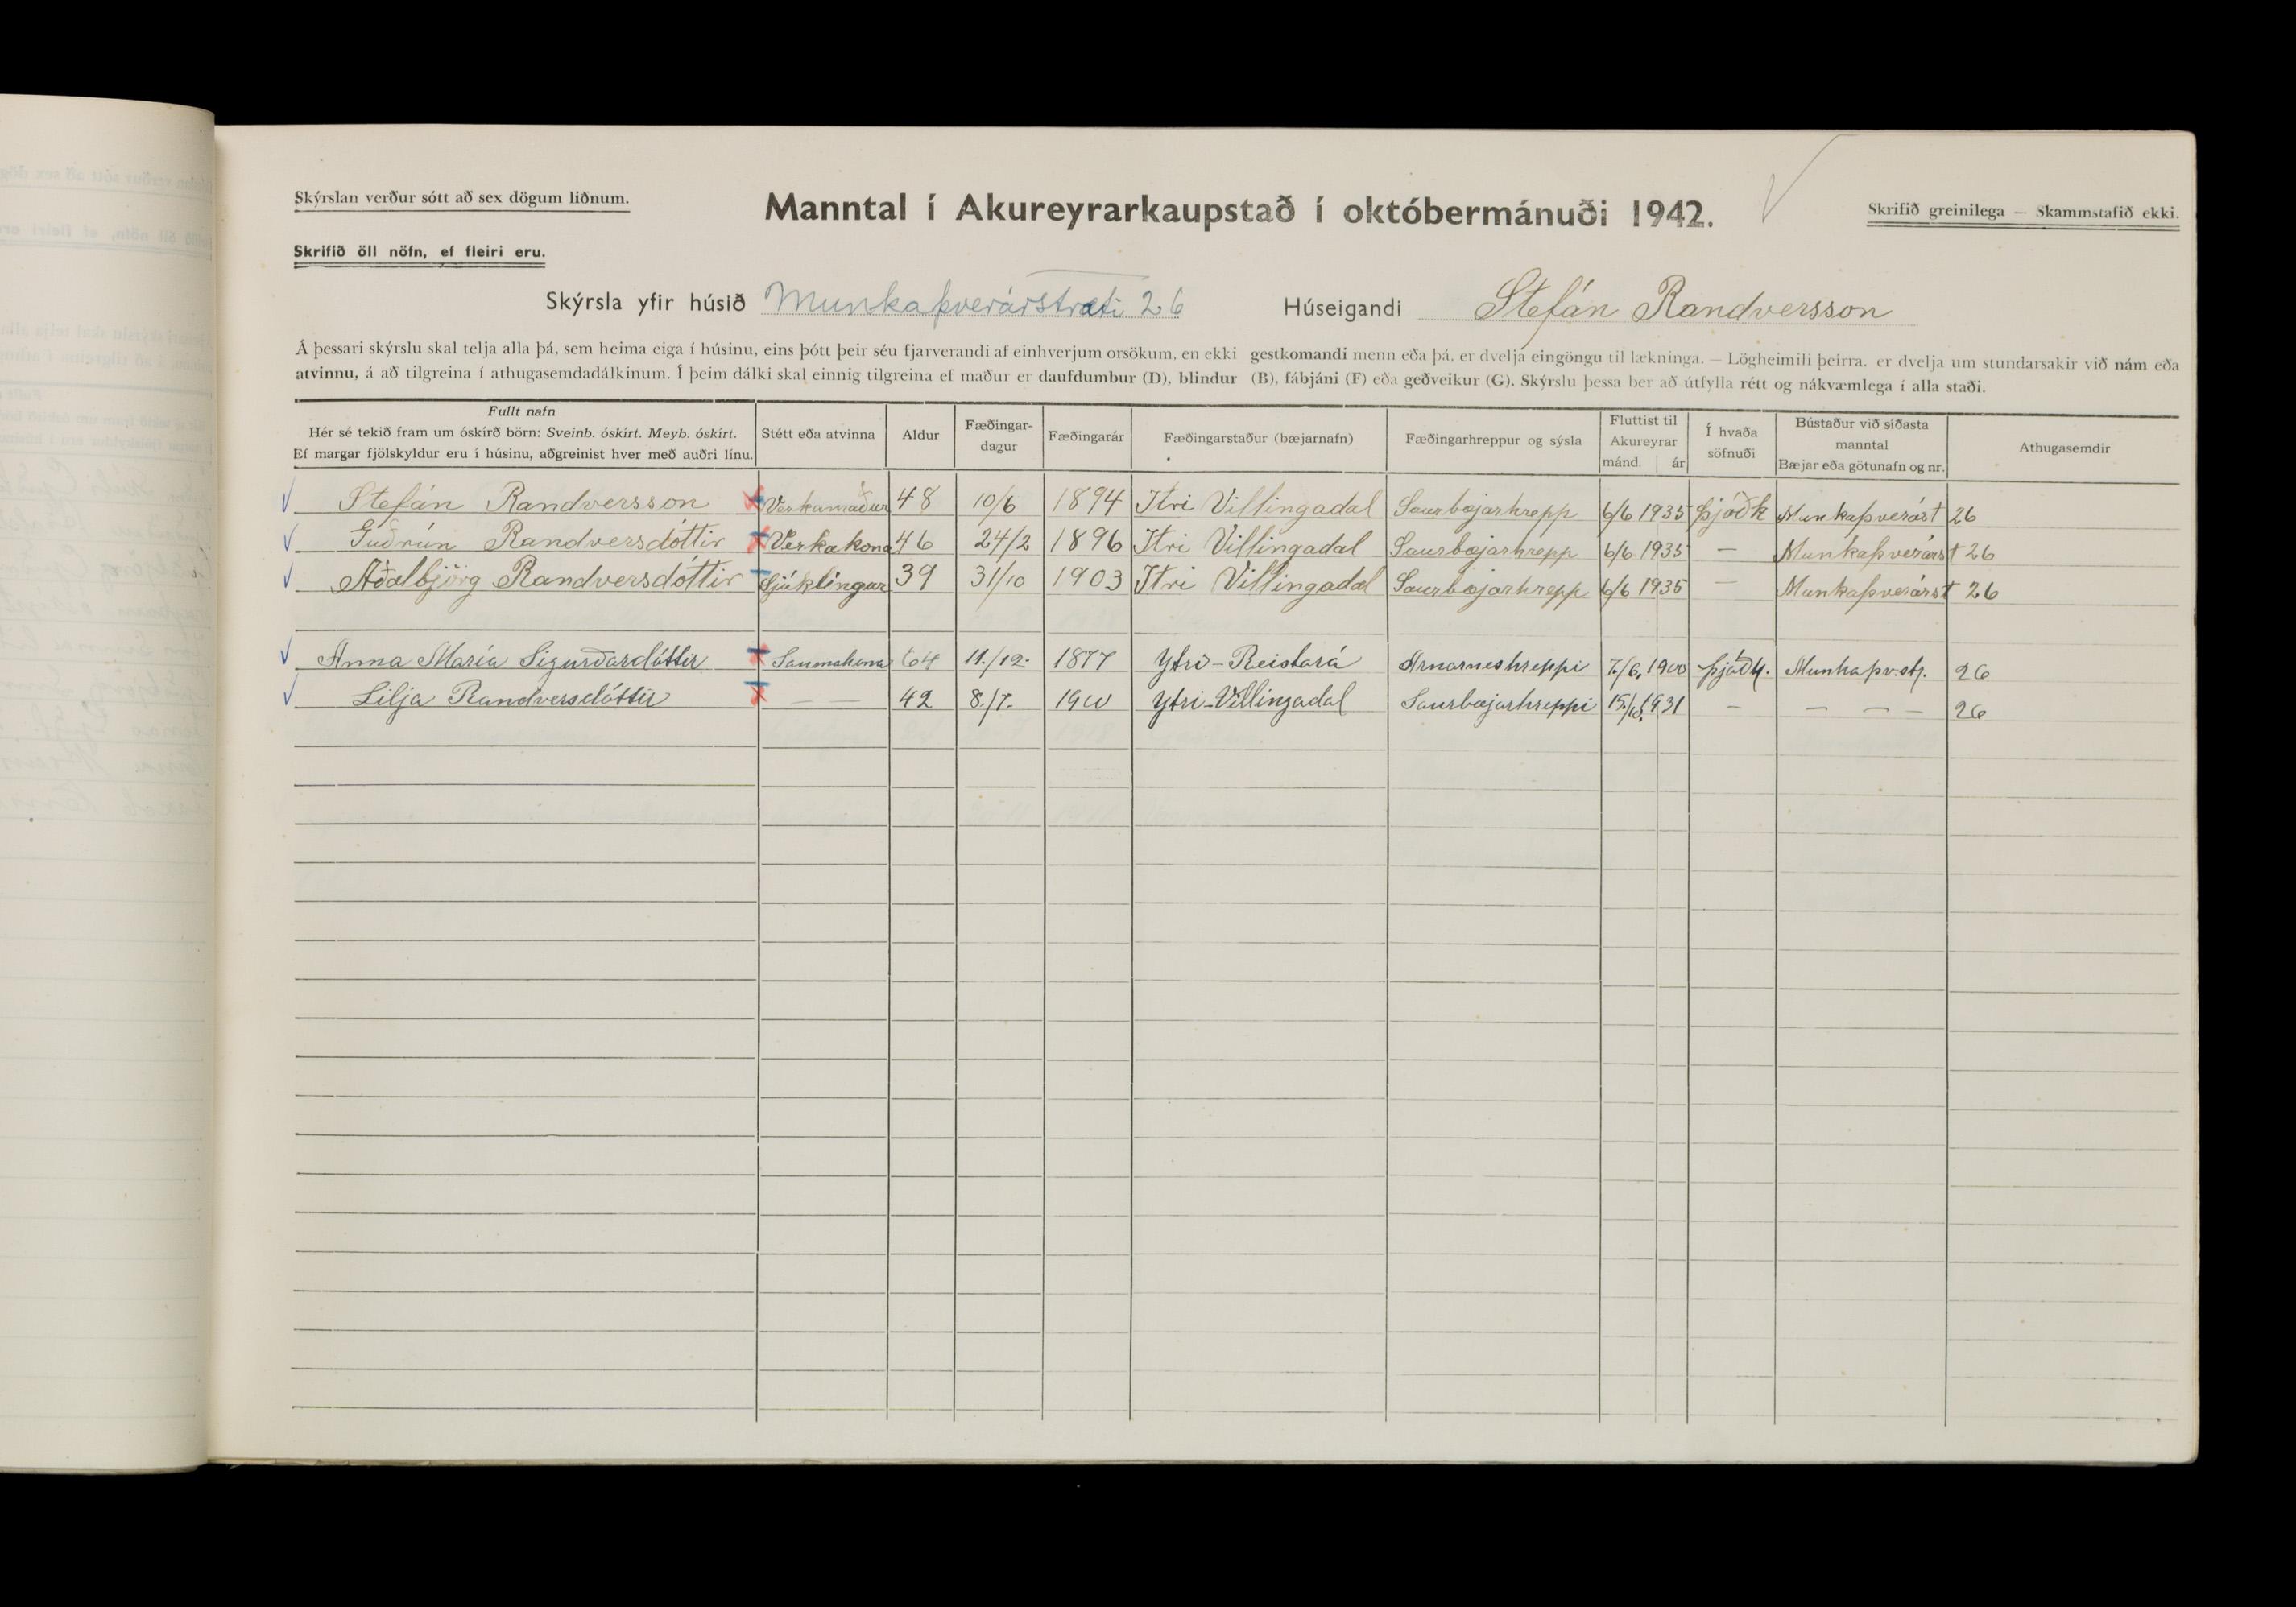 Skýrslan verður sótt að sex dögum liðnum.
Manntal í Akureyrarkaupstað í októbermánuði 1942.
Skrifið greinilega — Skammstafið ekki.
Skrifið öll nöfn, ef fleiri eru.
Skýrsla yfir húsið Munkaþverárstræti 26 Húseigandi Stefán Randversson
Á þessari skýrslu skal telja alla þá, sem heima eiga í húsinu, eins þótt þeir séu fjarverandi af einhverjum orsökum, en ekki gestkomandi menn eða þá, er dvelja eingöngu til lækninga. — Lögheimili þeirra, er dvelja um stundarsakir við nám eða
atvinnu, á að tilgreina í athugasemdadálkinum. Í þeim dálki skal einnig tilgreina ef maður er daufdumbur (D), blindur (B), fábjáni (F) eða geðveikur (G). Skýrslu þessa ber að útfylla rétt og nákvæmlega í alla staði.
Fullt nafn
Hér sé tekið fram um óskírð börn: Sveinb. óskírt. Meyb. óskírt.
Ef margar fjölskyldur eru í húsinu, aðgreinist hver með auðri línu.
Stétt eða atvinna
Aldur
Fæðingar-
dagur
Fæðingarár
Fæðingarstaður (bæjarnafn)
Fæðingarhreppur og sýsla
Fluttist til
Akureyrar
mánd. ár
Í hvaða
söfnuði
Bústaður við síðasta
manntal
Bæjar eða götunafn og nr.
Athugasemdir
Stefán Randversson Verkamaður 48 10/6 1894 Itri Villingadal Saurbæjarhrepp 6/6 1935 Þjóðk Munkaþverást 26
Guðrún Randversdóttir Verkakona 46 24/2 1896 Itri Villingadal Saurbæjarhrepp 6/6 1935 — Munkaþverárst 26
Aðalbjörg Randversdóttir Sjúklingur 39 31/10 1903 Itri Villingadal Saurbæjarhrepp 6/6 1935 — Munkaþverárst 26
Anna María Sigurðardóttir Saumakona 64 11./12. 1877 Ytri-Reistará Arnarneshreppi 7./6. 1900 Þjóðk. Munkaþv.str. 26
Lilja Randversdóttir — — 42 8./7. 1900 Ytri-Villingadal Saurbæjarhreppi 15./10. 1931 — — — — 26